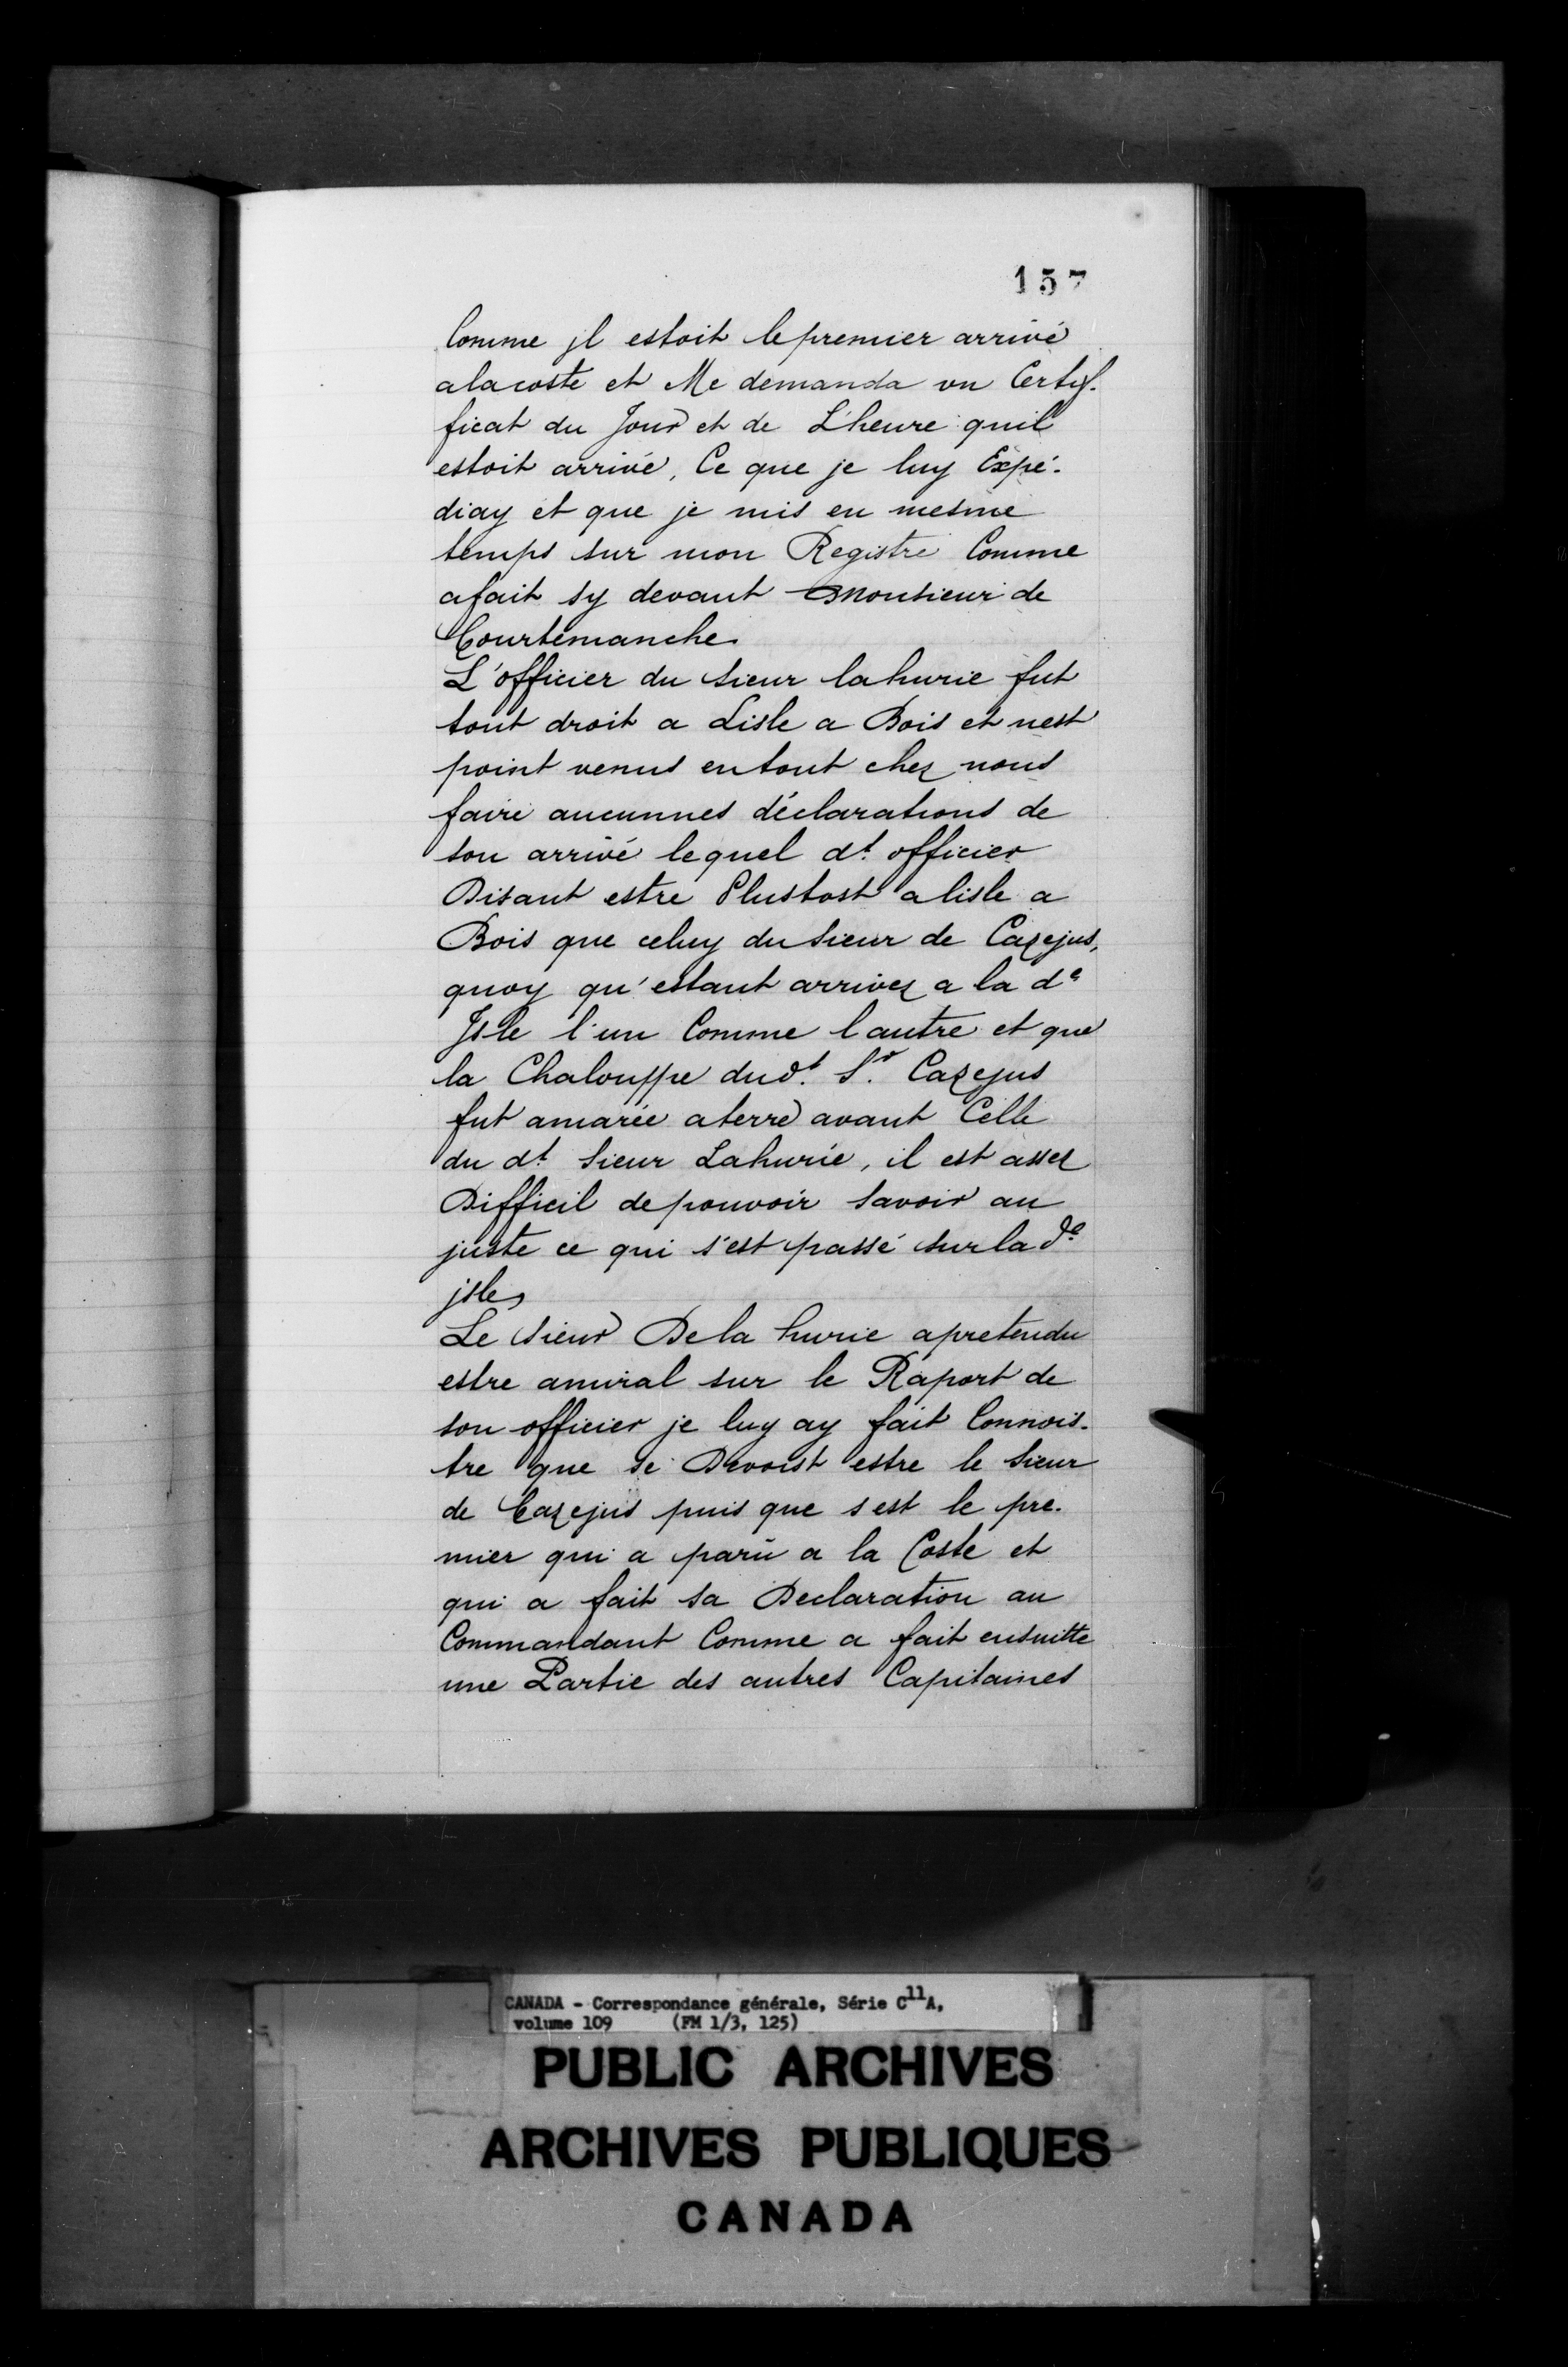 157
Comme jl estoit lepremier arrivé
alacoste et Me demanda un Certif-
ficat du Jour et de L'heure quil
estoit arrivé, Ce que je luy Expé-
diay et que je mis en mesme
temps sur mon Registre Comme
afait sy devant Monsieur de
Courtemanche
L'officier du sieur lahurie fut
tout droit a Lisle a Bois et nest
point venus entout chez nous
faire aucunnes déclarations de
son arrivé lequel dt. officier
Disant estre Plustost alisle a
Bois que celuy du sieur de Cazejus,
quoy qu'estant arrivez a la de
Isle l'un Comme lautre et que
la Chalouppe dudt. Sr. Cazejus
fut amarée aterre avant Celle
du dt. sieur Lahurie, il est assez
Difficil depouvoir savoir au
juste ce qui s'est passé surla de
jsle
Le sieur De la hurie apretendu
estre amiral sur le Raport de
son officier je luy ay fait Connois-
tre que se Devoist estre le sieur
de Cazejus puis que sest le pre-
mier qui a parû a la Coste et
qui a fait sa Declaration au
Commandant Comme a fait ensuitte
une Partie des autres Capitaines
CANADA - Correspondance générale, Série C11A,
volume 109 (FM 1/3, 125)
PUBLIC ARCHIVES
ARCHIVES PUBLIQUES
CANADA